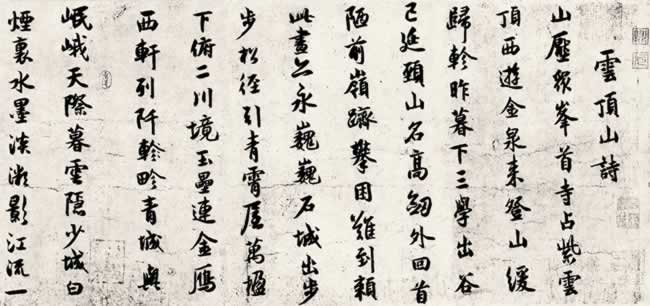 雲頂山詩
山壓眾峯首寺占紫雲
頂西遊金泉來登山緩
歸軫昨暮下三學出谷
已延頸山名高劒外回首
陋前嶺躋攀困難到賴
此晝亦永巍巍石城出步
步松徑引青霄屋萬楹
下俯二川境玉壘連金鴈
西軒列阡軫畛青城與
岷峨天際暮雲隱少城白
煙裏水墨淡影江流一